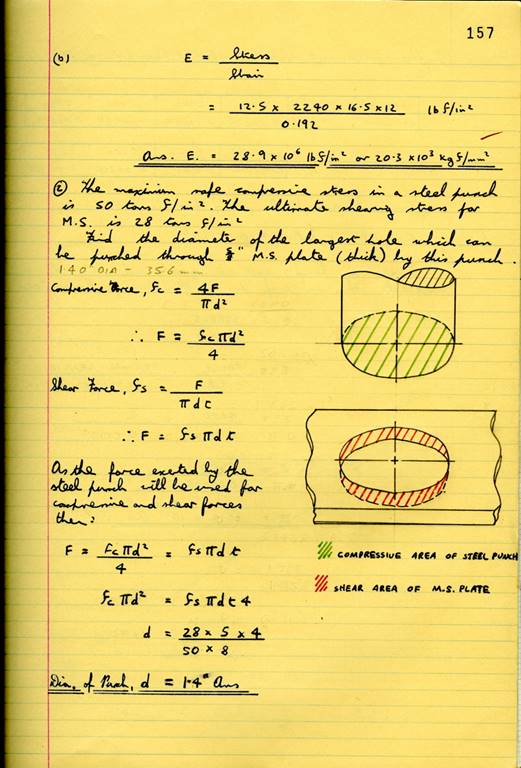 157
(b) E = Stress
Strain
= 12.5 x 2240 x 16.5 x 12 lb f/in²
0.192
Ans. E. = 28.9 x 10⁶ lb f/in² or 20.3 x 10³ kg f/mm²
(c) The maximum safe compressive stress in a steel punch
is 50 tons f/in². The ultimate shearing stress for
M.S. is 28 tons f/in²
Find the diameter of the largest hole which can
be punched through " M.S. plate (thick) by this punch.
1.40 DIA - 35.6 mm
Compressive Force, fc = 4F
πd²
∴ F = fc πd²
4
Shear Force, fs = F
πdt
∴ F = fs πdt
As the force exerted by the
steel punch will be used for
compressive and shear forces
then:
F = fc πd² = fs πdt
4
fc πd² = fs πdt4
d = 28 x 5 x 4
50 x 8
Dia. of Punch, d = 1.4" Ans
COMPRESSIVE AREA OF STEEL PUNCH
SHEAR AREA OF M.S. PLATE